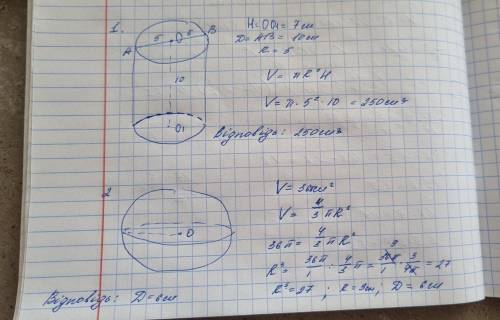 1.
5 O 5 B
A
10
O₁
H = OO₁ = 7 см
D = AB = 10 см
R = 5
V = πR²H
V = π · 5² · 10 = 250 см³
Відповідь: 250 см³
2
O
V = 36π см²
V = 4/3 πR²
36π = 4/3 πR²
R³ = 36π/1 : 4/3 π = 36π/1 · 3/4π = 27
R³ = 27 ; R = 3 см ; D = 6 см
Відповідь: D = 6 см